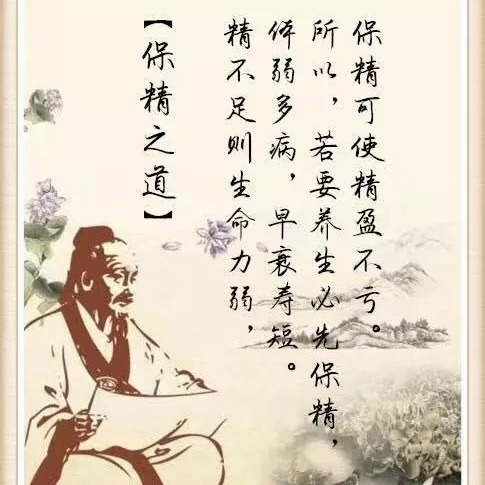 【保精之道】
精不足则生命力弱，
体弱多病，早衰寿短。
所以，若要养生必先保精，
保精可使精盈不亏。